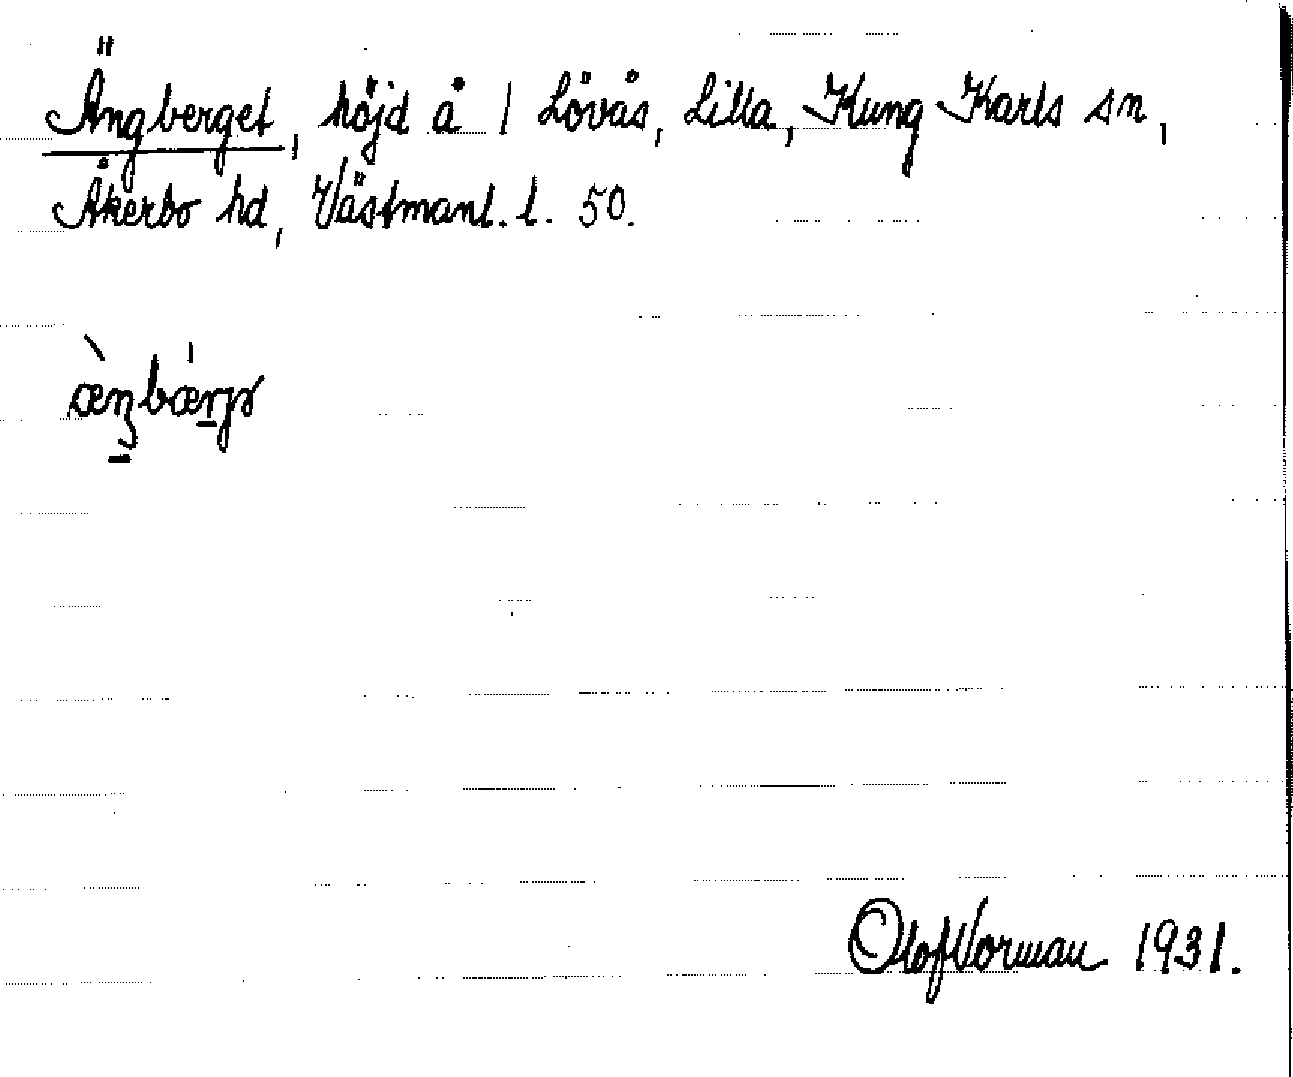 Ängberget, höjd å 1 Lövås, Lilla, Kung Karls sn,
Åkerbo hd, Västmanl. l. 50.
Olof Vorman 1931.